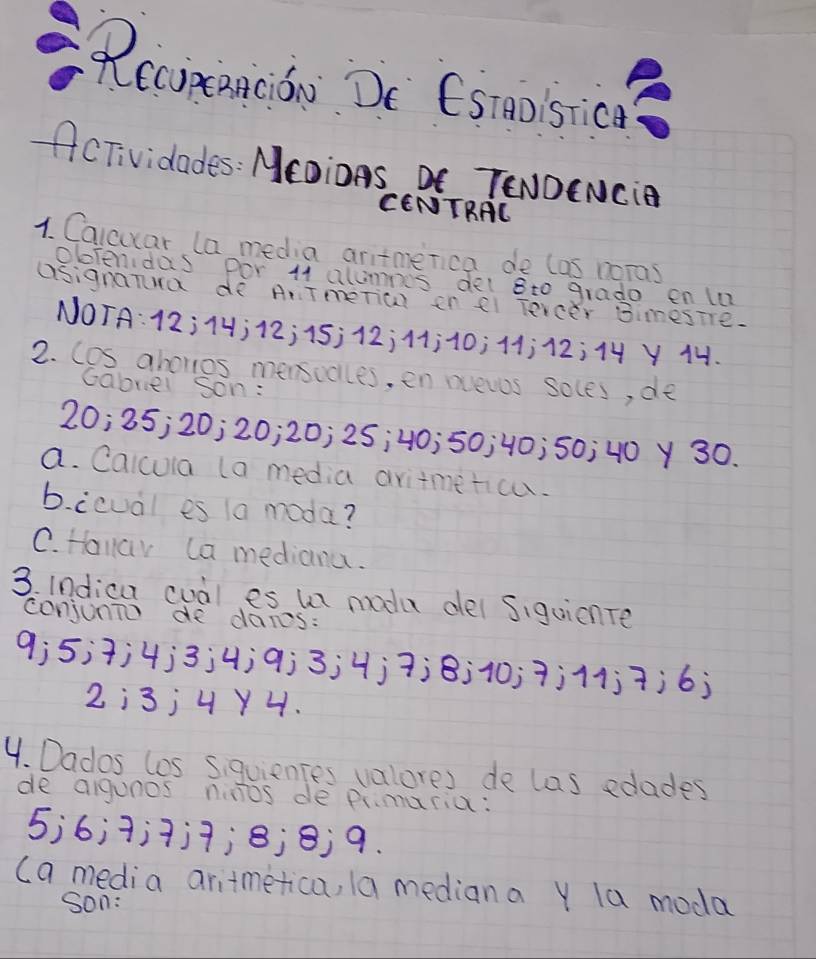 RECUPERACIÓN DE ESTADÍSTICA
ACTividades: MEDIDAS DE TENDENCIA
CENTRAL
1. Calcular la media aritmética de las notas
obtenidas por 11 alumnos del 6to grado en la
asignatura de Aritmética en el Tercer Bimestre.
NOTA: 12; 14; 12; 15; 12; 11; 10; 11; 12; 14 y 14.
2. Los ahorros mensuales, en nuevos soles, de
Gabriel son:
20; 25; 20; 20; 20; 25; 40; 50; 40; 50; 40 y 30.
a. Calcula la media aritmética.
b. ¿cuál es la moda?
C. Hallar la mediana.
3. Indica cuál es la moda del Siguiente
conjunto de datos:
9; 5; 7; 4; 3; 4; 9; 3; 4; 7; 8; 10; 7; 11; 7; 6;
2; 3; 4 y 4.
4. Dados los Siguientes valores de las edades
de algunos niños de primaria:
5; 6; 7; 7; 7; 8; 8; 9.
La media aritmética, la mediana y la moda
son: